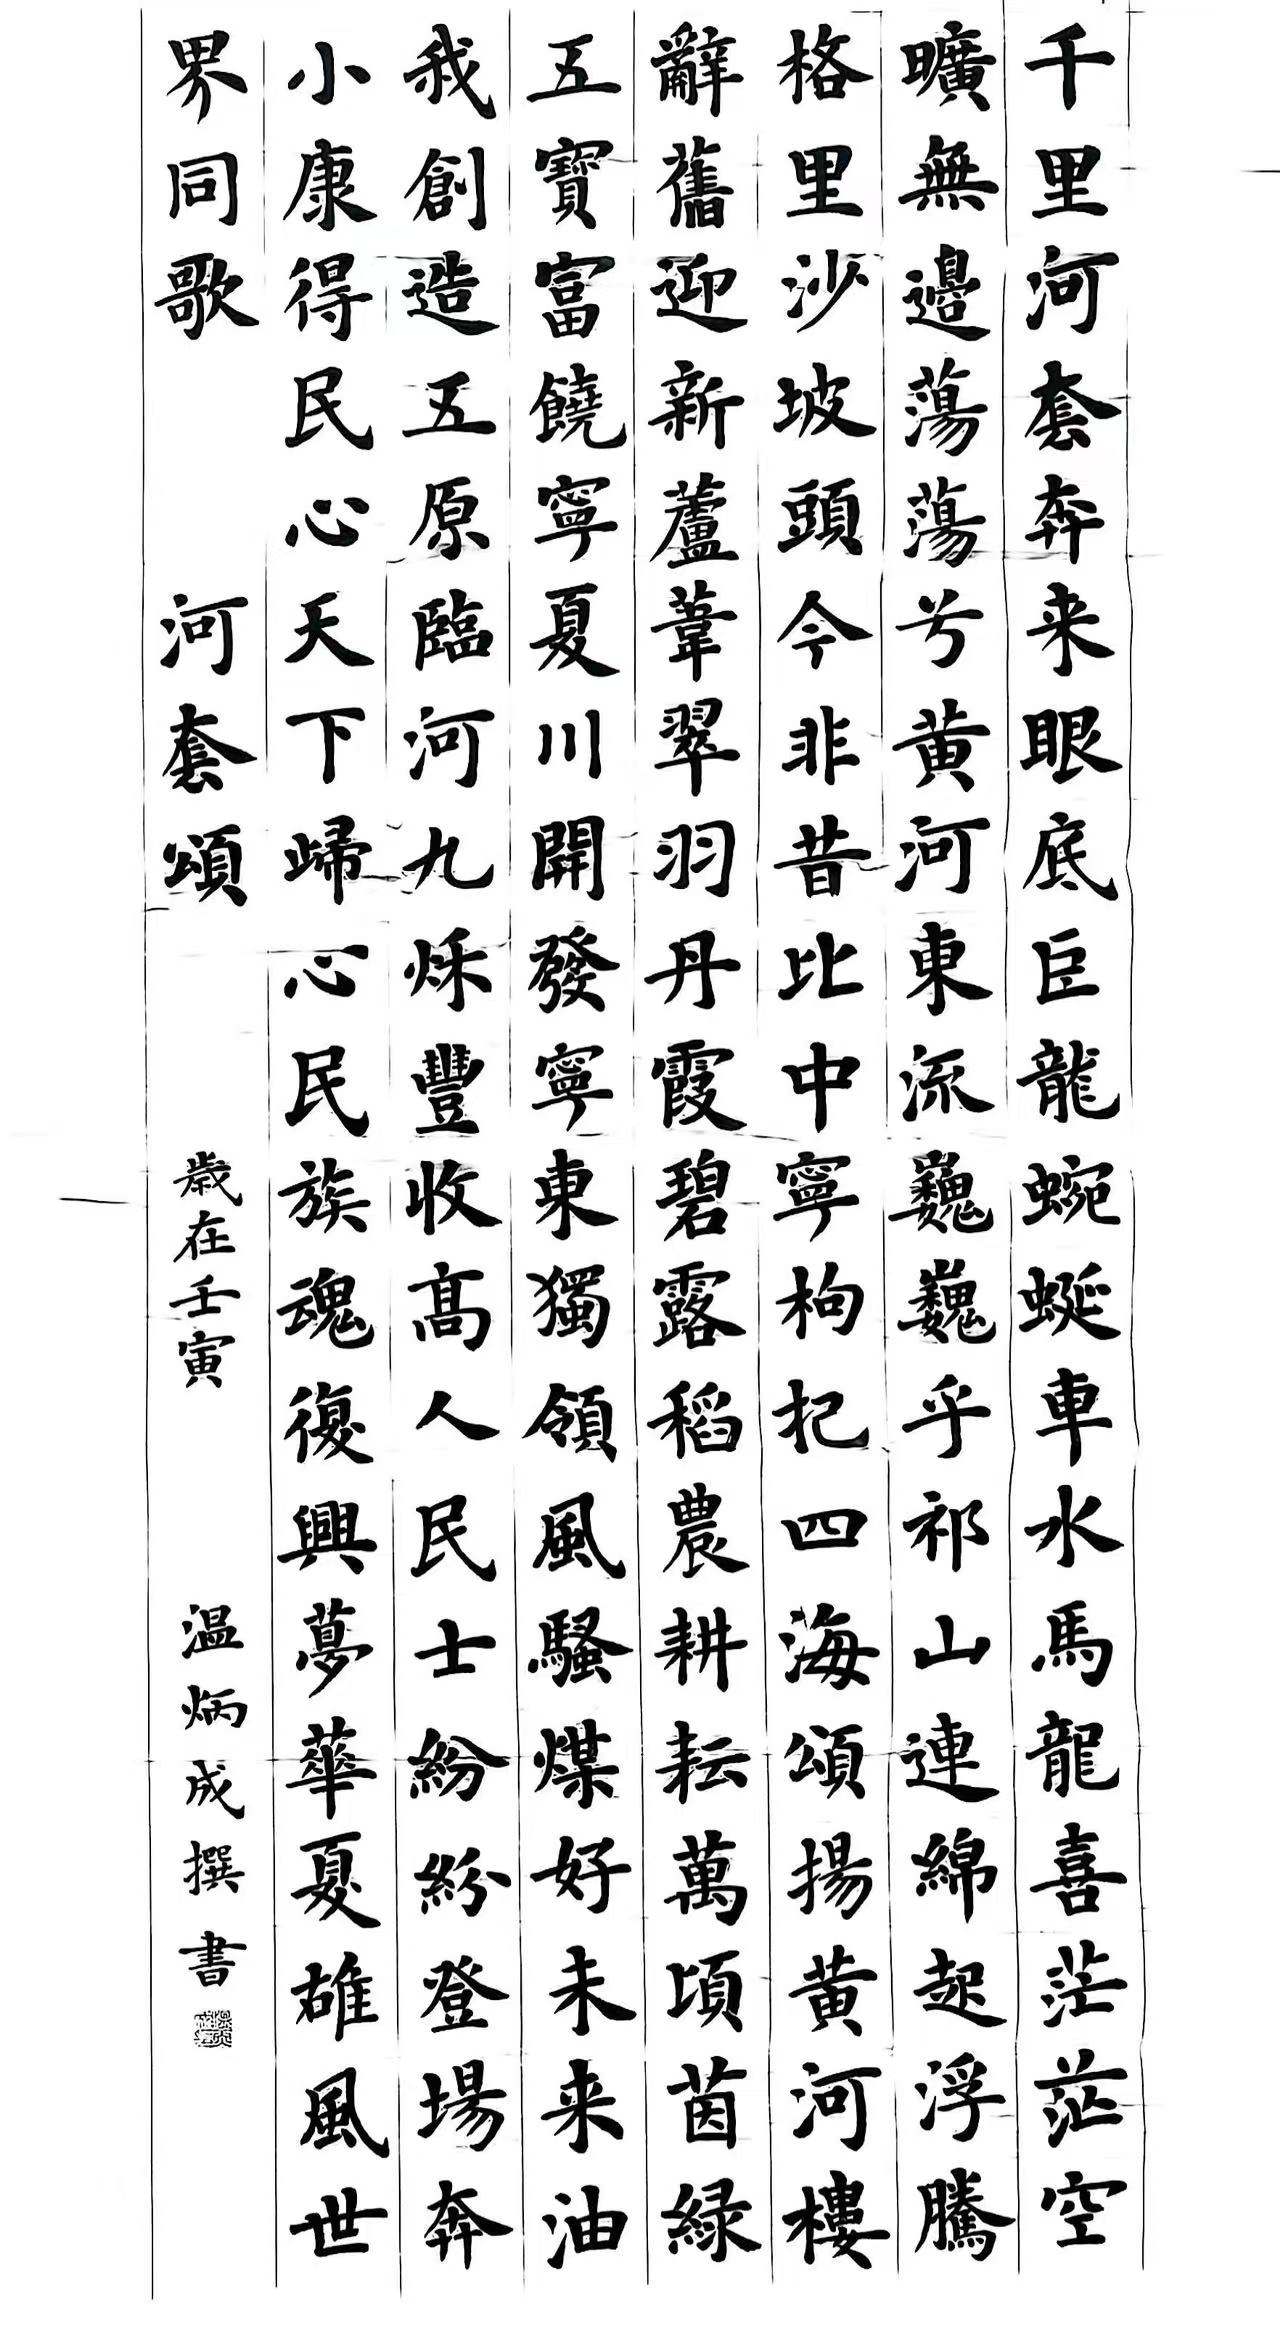 千里河套奔来眼底臣龍蜿蜒車水馬龍喜茫茫空
曠無邊蕩蕩兮黄河東流巍巍乎祁山連綿起浮騰
格里沙坡頭今非昔比中寧枸杞四海頌揚黄河樓
辭舊迎新蘆葦翠羽丹霞碧露稻農耕耘萬頃茵緑
五寶富饒寧夏川開發寧東獨領風騷煤好未来油
我創造五原臨河九秌豐收高人民士紛紛登場奔
小康得民心天下歸心民族魂復興夢華夏雄風世
界同歌
河套頌
歲在壬寅
温炳成撰書